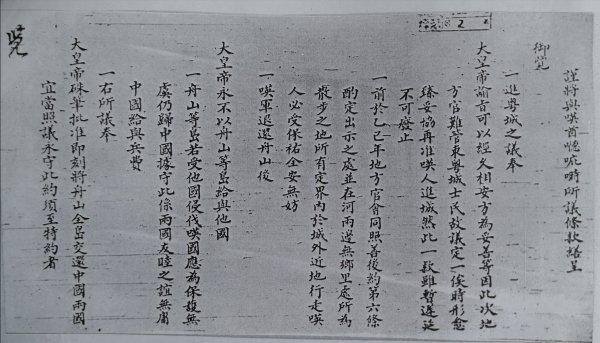 謹將與𠸄酋德呲時所議條款繕呈
御覽
一進粵城之議奉
大皇帝諭旨可以經久相安方為妥善等因此次地
方官難管束粵城士民故議定一俟時形愈
臻妥協再准𠸄人進城然此一款雖暫遲延
不可廢止
一前於乙巳年地方官會同照善後約第六條
酌定出示之處並在河兩邊無鄉里處所為
散步之地所有定界內於城外近地行走𠸄
人必受保祐全安無妨
一𠸄軍退還舟山後
大皇帝永不以舟山等島給與他國
一舟山等島若受他國侵伐𠸄國應為保護無
虞仍歸中國據守此係兩國友睦之誼無庸
中國給與兵費
一右所議奉
大皇帝硃筆批准即刻將舟山全島交還中國兩國
宜當照議永守此約須至特約者
覽
2